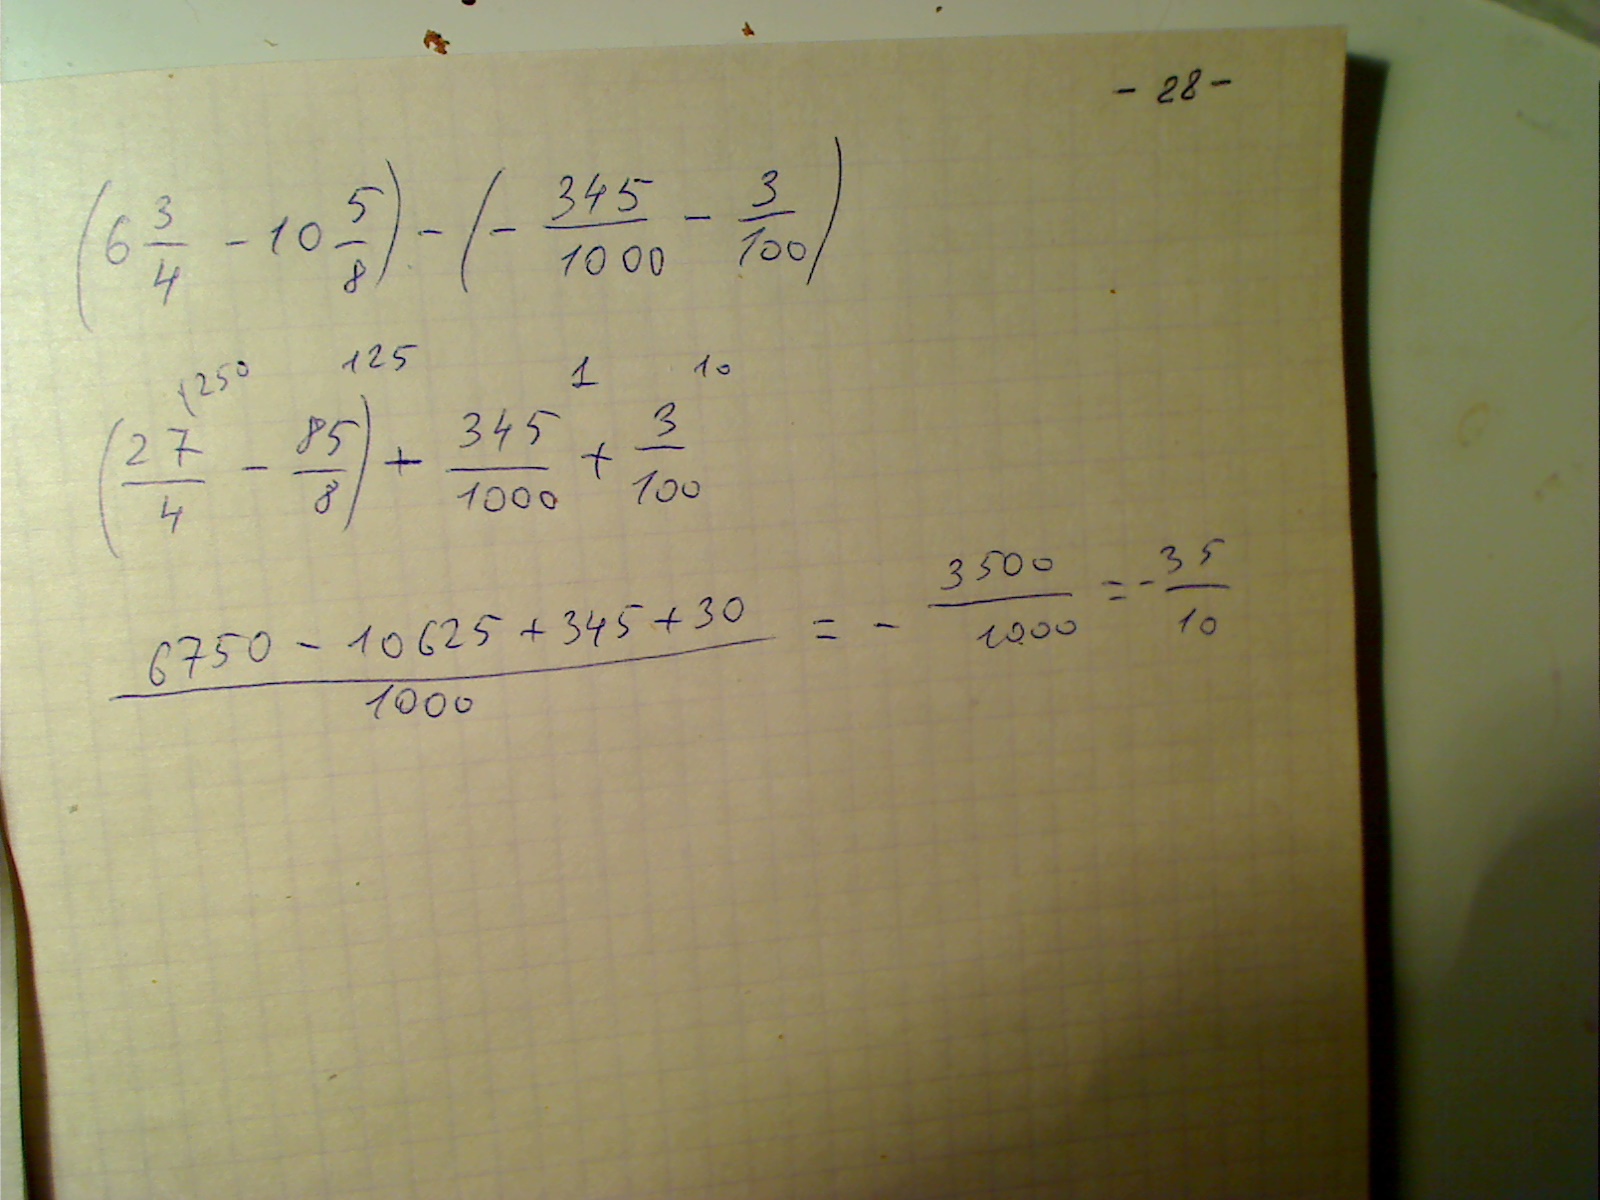 - 28 -
(6 3/4 - 10 5/8) - (- 345/1000 - 3/100)
250 125 1 10
(27/4 - 85/8) + 345/1000 + 3/100
(6750 - 10625 + 345 + 30)/1000 = - 3500/1000 = - 35/10